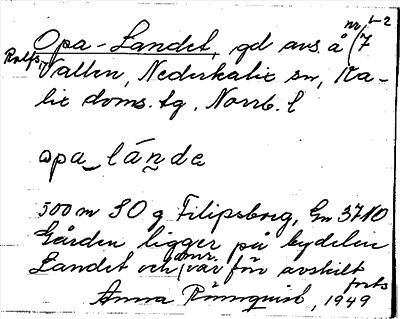 nr 1-2
Opa-Landet, gd avs. å (7
Rolfs,
Vallen, Nederkalix sn, Ka-
lix doms. tg, Norrb. l
opa_lánde
500 m SO g Filipsborg, Gm 37 NO
Gården ligger på bydelen
Landet och nr. var för avskilt
forts
Anna Rönnquist, 1949